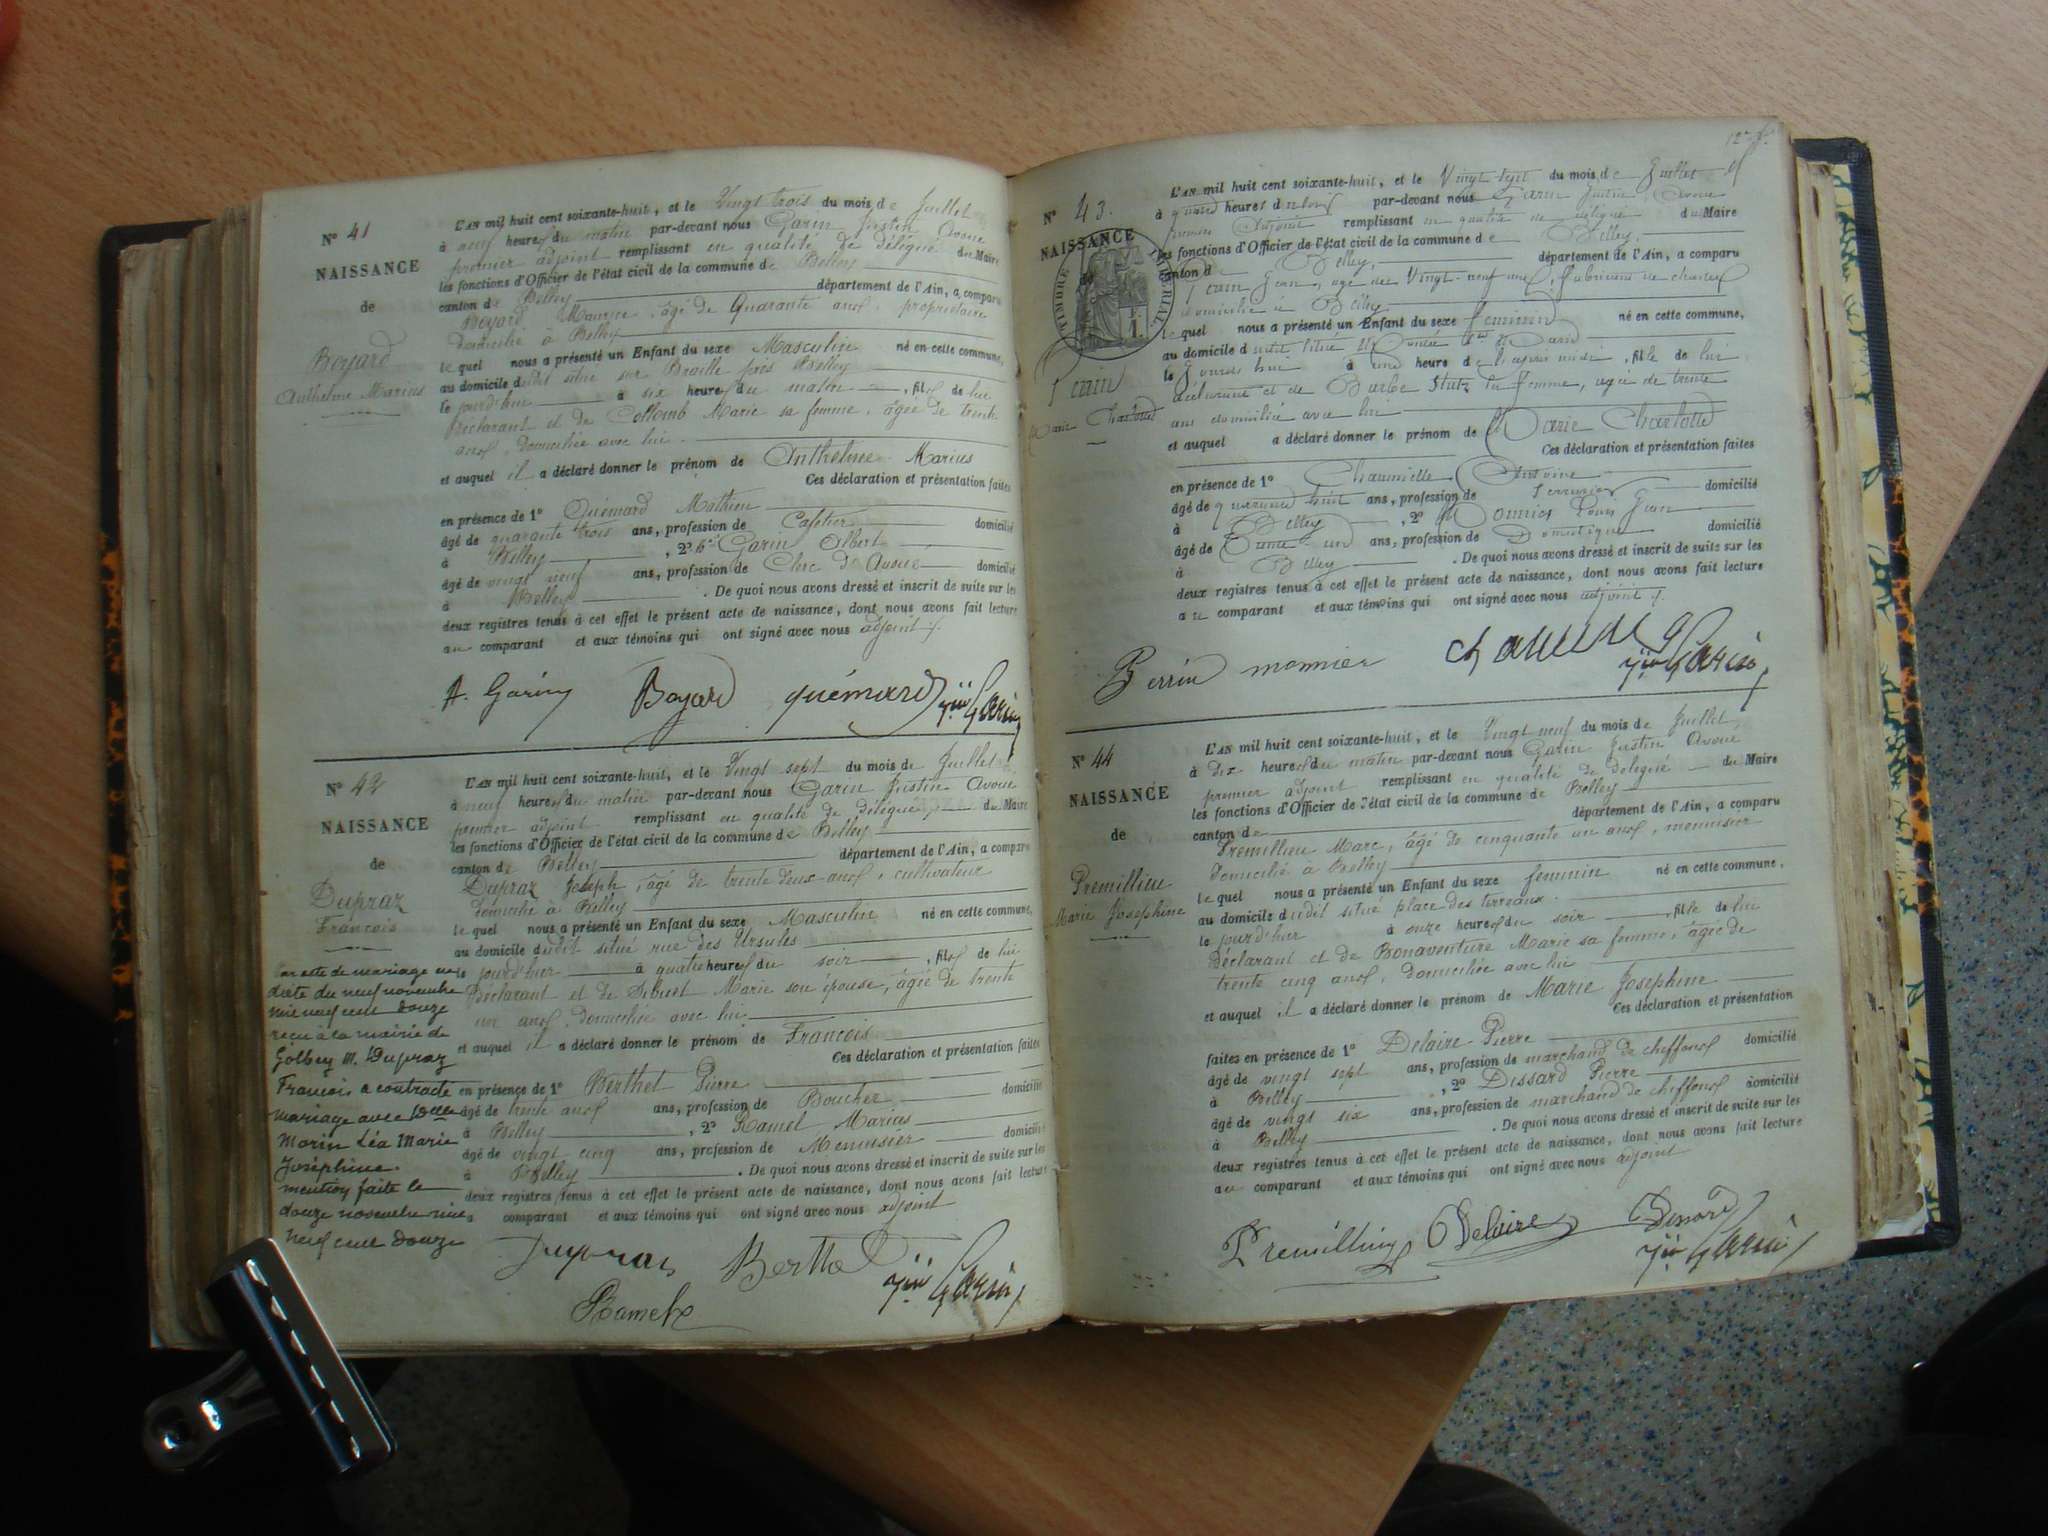 N° 41
NAISSANCE
de
Boyard
Anthelme Marius
L'AN mil huit cent soixante-huit, et le Vingt trois du mois de Juillet
à neuf heures du matin par-devant nous Garin Justin Avoué
premier adjoint remplissant en qualité de délégué du Maire
les fonctions d'Officier de l'état civil de la commune de Belley
canton de Belley département de l'Ain, a comparu
Boyard Maurice, âgé de Quarante ans, propriétaire
domicilié à Belley
lequel nous a présenté un Enfant du sexe Masculin né en cette commune,
au domicile dudit situé sur près Belley
le jourd'hier à six heures du matin, fils de lui
Déclarant et de Collomb Marie sa femme, âgée de trente
ans, domiciliée avec lui.
et auquel il a déclaré donner le prénom de Anthelme Marius
Ces déclaration et présentation faites
en présence de 1° Quémard Mathieu
âgé de quarante trois ans, profession de Cafetier domicilié
à Belley, 2° Garin Albert
âgé de vingt neuf ans, profession de Clerc d'Avoué domicilié
à Belley. De quoi nous avons dressé et inscrit de suite sur les
deux registres tenus à cet effet le présent acte de naissance, dont nous avons fait lecture
au comparant et aux témoins qui ont signé avec nous adjoint /.
A. Garin Boyard quémard Jin Garin
N° 42
NAISSANCE
de
Dupraz
François
L'AN mil huit cent soixante-huit, et le Vingt sept du mois de Juillet
à neuf heures du matin par-devant nous Garin Justin Avoué
premier adjoint remplissant en qualité de délégué, du Maire
les fonctions d'Officier de l'état civil de la commune de Belley
canton de Belley département de l'Ain, a comparu
Dupraz Joseph, âgé de trente deux ans, cultivateur
domicilié à Belley
lequel nous a présenté un Enfant du sexe Masculin né en cette commune,
au domicile dudit situé rue des Ursules
le jourd'hier à quatre heures du soir, fils de lui
Déclarant et de Marie son épouse, âgée de trente
un ans, domiciliée avec lui
et auquel il a déclaré donner le prénom de François
Ces déclaration et présentation faites
en présence de 1° Berthet Pierre
âgé de trente ans ans, profession de Boucher domicilié
à Belley, 2° Ramel Marius
âgé de vingt cinq ans, profession de Menuisier domicilié
à Belley. De quoi nous avons dressé et inscrit de suite sur les
deux registres tenus à cet effet le présent acte de naissance, dont nous avons fait lecture
au comparant et aux témoins qui ont signé avec nous adjoint
Dupraz Berthet Jin Garin
Ramel
Par acte de mariage en
date du neuf novembre
mil neuf cent douze
reçu à la mairie de
Golbey M. Dupraz
François a contracté
mariage avec Delle
Morin Léa Marie
Joséphine.
mention faite le
douze novembre mil
neuf cent douze
N° 43.
NAISSANCE
de
TIMBRE IMPÉRIAL
1 F.
Marie Charlotte
L'AN mil huit cent soixante-huit, et le Vingt sept du mois de Juillet
à heures du soir par-devant nous Garin Justin Avoué
premier Adjoint remplissant en qualité de délégué du Maire
les fonctions d'Officier de l'état civil de la commune de Belley,
canton de Belley, département de l'Ain, a comparu
Jean, âgé de Vingt-neuf ans, fabricant de
domicilié à Belley
lequel nous a présenté un Enfant du sexe féminin né en cette commune,
au domicile dudit situé
le jourd'hui à une heure de l'après midi, fille de lui
déclarant et de Barbe Stutz sa femme, âgée de trente
ans domiciliée avec lui
et auquel a déclaré donner le prénom de Marie Charlotte
Ces déclaration et présentation faites
en présence de 1° Antoine
âgé de quarante huit ans, profession de Serrurier domicilié
à Belley, 2° Monnier Louis Jean
âgé de Trente un ans, profession de Domestique domicilié
à Belley. De quoi nous avons dressé et inscrit de suite sur les
deux registres tenus à cet effet le présent acte de naissance, dont nous avons fait lecture
au comparant et aux témoins qui ont signé avec nous adjoint /.
Perrin monnier Jin Garin
N° 44
NAISSANCE
de
Premillieu
Marie Josephine
L'AN mil huit cent soixante-huit, et le Vingt neuf du mois de Juillet,
à dix heures du matin par-devant nous Garin Justin Avoué
premier adjoint remplissant en qualité de délégué du Maire
les fonctions d'Officier de l'état civil de la commune de Belley
canton de département de l'Ain, a comparu
Premillieu Marc, âgé de cinquante un ans, menuisier
domicilié à Belley
lequel nous a présenté un Enfant du sexe féminin né en cette commune,
au domicile dudit situé place des terreaux.
le jourd'hier à onze heures du soir, fille de lui
Déclarant et de Bonaventure Marie sa femme, âgée de
trente cinq ans, domiciliée avec lui
et auquel il a déclaré donner le prénom de Marie Josephine
Ces déclaration et présentation
faites en présence de 1° Delaire Pierre
âgé de vingt sept ans, profession de marchand de cheffons domicilié
à Belley, 2° Dissard Pierre
âgé de vingt six ans, profession de marchand de cheffons domicilié
à Belley. De quoi nous avons dressé et inscrit de suite sur les
deux registres tenus à cet effet le présent acte de naissance, dont nous avons fait lecture
au comparant et aux témoins qui ont signé avec nous adjoint
Premillieu Delaire Dissard
Jin Garin